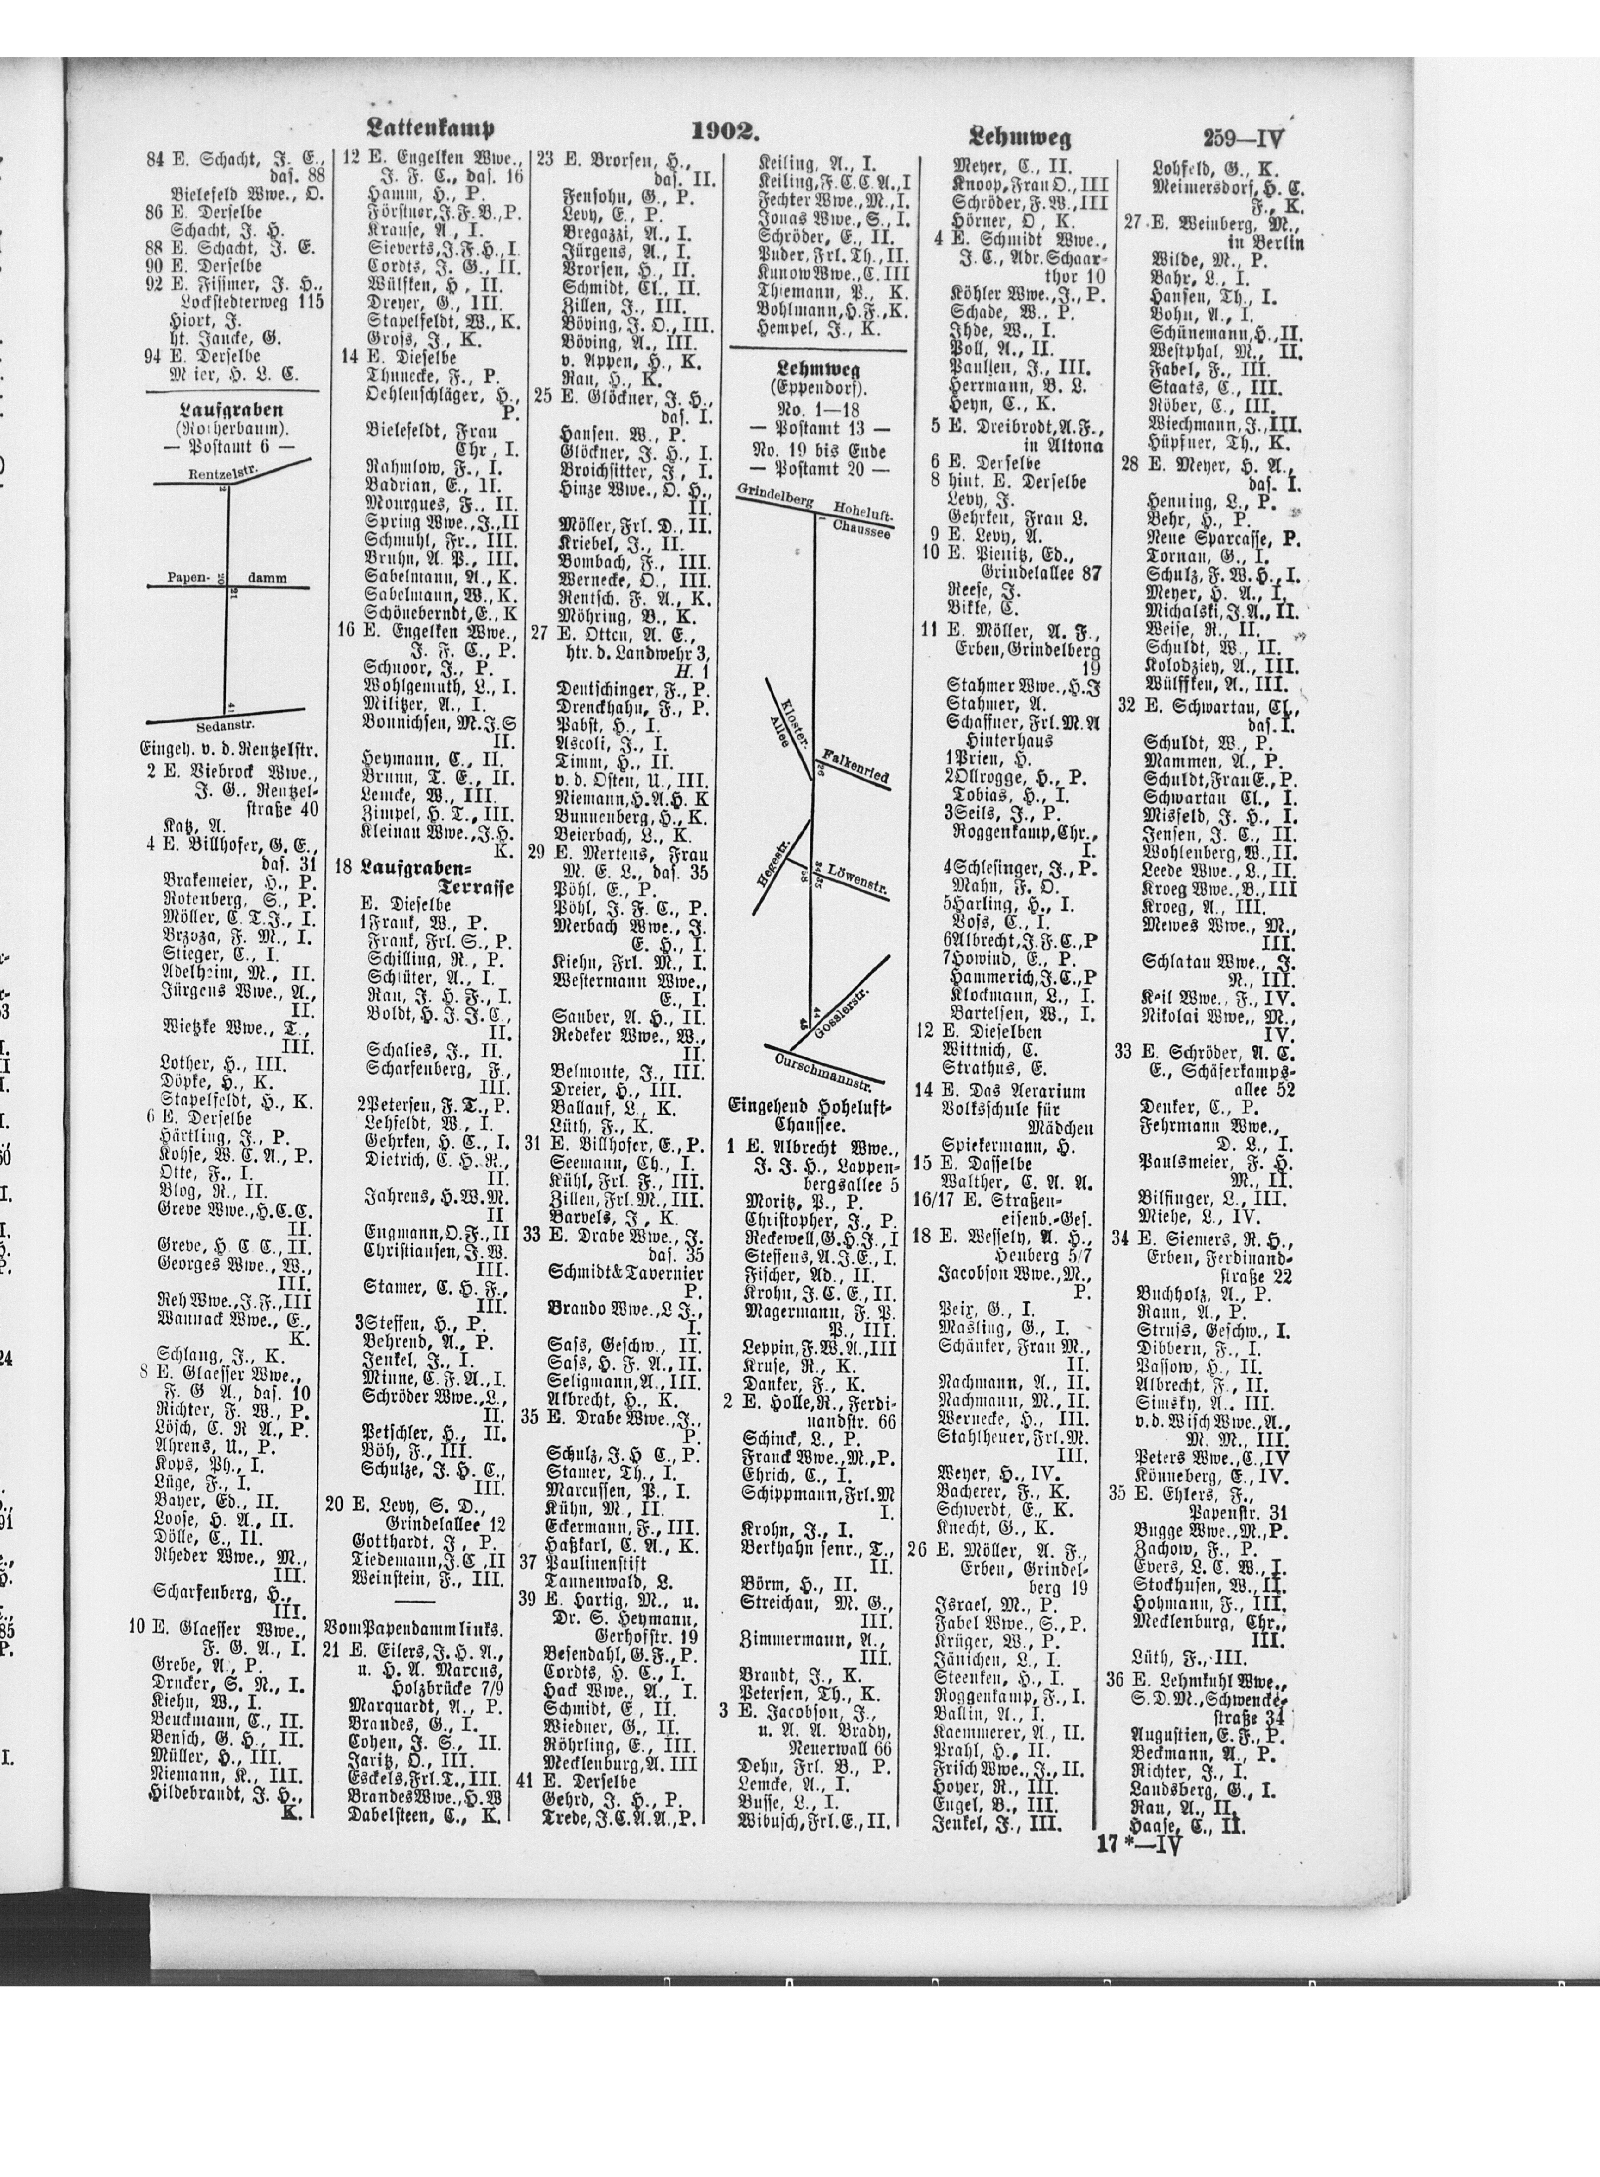 Lattenkamp
1902.
Lehmweg
259—IV
84 E. Schacht, J. E.,
das. 88
Bielefeld Wwe., O.
86 E. Derselbe
Schacht, J. H.
88 E. Schacht, J. E.
90 E. Derselbe
92 E. Fissmer, J. H.,
Lockstedterweg 115
Hiort, J.
ht. Jancke, G.
94 E. Derselbe
M ier, H. L. C.
Laufgraben
(Rotherbaum).
— Postamt 6 —
Rentzelstr.
Papen- damm
20
21
41
Sedanstr.
Eingeh. v. d. Rentzelstr.
2 E. Viebrock Wwe.,
J. G., Rentzel-
straße 40
Katz, A.
4 E. Billhofer, G. E.,
das. 31
Brakemeier, H., P.
Rotenberg, S., P.
Möller, C. T. J., I.
Brzoza, F. M., I.
Stieger, C., I.
Adelheim, M., II.
Jürgens Wwe., A.,
II.
Wietzke Wwe., T.,
III.
Lother, H., III.
Döpke, H., K.
Stapelfeldt, H., K.
6 E. Derselbe
Härtling, J., P.
Kohse, W. C. A., P.
Otte, F., I.
Blog, R., II.
Greve Wwe., H. C. C.
II.
Greve, H. C. C., II.
Georges Wwe., W.,
III.
Reh Wwe., J. F., III
Wannack Wwe., E.,
K.
Schlang, J., K.
8 E. Glaesser Wwe.,
F. G A., das. 10
Richter, F. W., P.
Lösch, C. R A., P.
Ahrens, U., P.
Kops, Ph., I.
Lüge, F., I.
Bayer, Ed., II.
Loose, H. A., II.
Dölle, C., II.
Rheder Wwe., M.,
III.
Scharfenberg, H.,
III.
10 E. Glaesser Wwe.,
F. G. A., I.
Grebe, A., P.
Drucker, S. N., I.
Kiehn, W., I.
Benckmann, C., II.
Bensch, G. H., II.
Müller, H., III.
Niemann, K., III.
Hildebrandt, J. H.,
K.
12 E. Engelken Wwe.,
J. F. C., das. 16
Hamm, H., P.
Förstner, J. F. B., P.
Krause, A., I.
Sieverts, J. F. H., I.
Cordts, J. G., II.
Wülfken, H., II.
Dreyer, G., III.
Stapelfeldt, W., K.
Gross, J., K.
14 E. Dieselbe
Thunecke, F., P.
Oehlenschläger, H.,
P.
Bielefeldt, Frau
Chr., I.
Rahmlow, F., I.
Badrian, E., II.
Mourgues, F., II.
Spring Wwe., J., II
Schmuhl, Fr., III.
Bruhn, A. P., III.
Sabelmann, A., K.
Sabelmann, W., K.
Schöneberndt, E., K
16 E. Engelken Wwe.,
J. F. C., P.
Schnoor, J., P.
Wohlgemuth, L., I.
Militzer, A., I.
Bonnichsen, M. J. S
II.
Heymann, C., II.
Brunn, T. E., II.
Lemcke, W., III.
Zimpel, H. T., III.
Kleinau Wwe., J. H.
K.
18 Laufgraben-
Terrasse
E. Dieselbe
1 Frank, W., P.
Frank, Frl. S., P.
Schilling, R., P.
Schlüter, A., I.
Rau, J. H. F., I.
Boldt, H. J. J. C.,
II.
Schalies, J., II.
Scharfenberg, F.,
III.
2 Petersen, F. T., P.
Lehfeldt, W., I.
Gehrken, H. C., I.
Dietrich, C. H. R.,
II.
Jahrens, H. W. M.
II
Engmann, O. F., II
Christiansen, J. W.
III.
Stamer, C. H. F.,
III.
3 Steffen, H., P.
Behrend, A., P.
Jenkel, J., I.
Minne, C. F. A., I.
Schröder Wwe., L.,
II.
Petschler, H., II.
Böh, F., III.
Schulze, J. H. C.,
III.
20 E. Levy, S. D.,
Grindelallee 12
Gotthardt, J., P.
Tiedemann, J. C., II
Weinstein, F., III.
Vom Papendamm links.
21 E. Eilers, J. H. A.,
u. H. A. Marcus,
Holzbrücke 7/9
Marquardt, A., P.
Brandes, G., I.
Cohen, J. S., II.
Jaritz, O., III.
Esckels, Frl. T., III.
Brandes Wwe., H. W
Dabelsteen, C., K.
23 E. Brorsen, H.,
das. II.
Fensohn, G., P.
Levy, E., P.
Bregazzi, A., I.
Jürgens, A., I.
Brorsen, H., II.
Schmidt, Cl., II.
Zillen, J., III.
Böving, J. O., III.
Böving, A., III.
v. Appen, H., K.
Rau, H., K.
25 E. Glöckner, J. H.,
das. I.
Hansen. W., P.
Glöckner, J. H., I.
Broichsitter, J., I.
Hinze Wwe., O. H.,
II.
Möller, Frl. D., II.
Kriebel, J., II.
Bombach, F., III.
Wernecke, O., III.
Rentsch. F. A., K.
Möhring, B., K.
27 E. Otten, A. E.,
htr. d. Landwehr 3,
H. 1
Deutschinger, F., P.
Drenckhahn, F., P.
Pabst, H., I.
Ascoli, J., I.
Timm, H., II.
v. d. Osten, U., III.
Niemann, H. A. H. K
Bunnenberg, H., K.
Beierbach, L., K.
29 E. Mertens, Frau
M. E. L., das. 35
Pöhl, E., P.
Pöhl, J. F. C., P.
Merbach Wwe., J.
E. H., I.
Kiehn, Frl. M., I.
Westermann Wwe.,
E., I.
Sauber, A. H., II.
Redeker Wwe., W.,
II.
Belmonte, J., III.
Dreier, H., III.
Ballauf, L., K.
Lüth, F., K.
31 E. Billhofer, E., P.
Seemann, Ch., I.
Kühl, Frl. F., III.
Zillen, Frl. M., III.
Barvels, J., K.
33 E. Drabe Wwe., J.
das. 35
Schmidt & Tavernier
P.
Brando Wwe., L J.,
I.
Sass, Geschw., II.
Sass, H. F. A., II.
Seligmann, A., III.
Albrecht, H., K.
35 E. Drabe Wwe., J.,
P.
Schulz, J. H C., P.
Stamer, Th., I.
Marcussen, P., I.
Kühn, M., II.
Eckermann, F., III.
Haßkarl, C. A., K.
37 Paulinenstift
Tannenwald, L.
39 E. Hartig, M., u.
Dr. S. Heymann,
Gerhofstr. 19
Besendahl, G. F., P.
Cordts, H. C., I.
Hack Wwe., A., I.
Schmidt, E., II.
Wiedner, G., II.
Röhrling, E., III.
Mecklenburg, A. III
41 E. Derselbe
Gehrd, J. H., P.
Trede, J. C. A. A., P.
Keiling, A., I.
Keiling, F. C. C. A., I
Fechter Wwe., M., I.
Jonas Wwe., S., I.
Schröder, E., II.
Puder, Frl. Th., II.
Kunow Wwe., C. III
Thiemann, P., K.
Bohlmann, H. F., K.
Hempel, J., K.
Lehmweg
(Eppendorf).
No. 1—18
— Postamt 13 —
No. 19 bis Ende
— Postamt 20 —
Grindelberg
Hoheluft-
Chaussee
Kloster-
Allee
Falkenried
26
Hegestr.
Löwenstr.
35
Gosslerstr.
Curschmannstr.
Eingehend Hoheluft-
Chaussee.
1 E. Albrecht Wwe.,
J. J. H., Lappen-
bergsallee 5
Moritz, P., P.
Christopher, J., P.
Reckewell, G. H. J., I
Steffens, A. J. E., I.
Fischer, Ad., II.
Krohn, J. C. E., II.
Magermann, F. P.
P., III.
Leppin, F. W. A., III
Kruse, R., K.
Danker, F., K.
2 E. Holle, R., Ferdi-
nandstr. 66
Schinck, L., P.
Franck Wwe., M., P.
Ehrich, C., I.
Schippmann, Frl. M
I.
Krohn, J., I.
Berkhahn senr., T.,
II.
Börm, H., II.
Streichan, M. G.,
III.
Zimmermann, A.,
III.
Brandt, J., K.
Petersen, Th., K.
3 E. Jacobson, J.,
u. A. A. Brady,
Neuerwall 66
Dehn, Frl. B., P.
Lemcke, A., I.
Busse, L., I.
Wibusch, Frl. E., II.
Meyer, C., II.
Knoop, Frau O., III
Schröder, F. W., III
Hörner, O., K.
4 E. Schmidt Wwe.,
J. C., Adr. Schaar-
thor 10
Köhler Wwe., J., P.
Schade, W., P.
Ihde, W., I.
Poll, A., II.
Paulsen, J., III.
Herrmann, B. L.
Heyn, C., K.
5 E. Dreibrodt, A. F.,
in Altona
6 E. Derselbe
8 hint. E. Derselbe
Levy, J.
Gehrken, Frau L.
9 E. Levy, A.
10 E. Pienitz, Ed.,
Grindelallee 87
Reese, J.
Vikke, C.
11 E. Möller, A. F.,
Erben, Grindelberg
19
Stahmer Wwe., H. J
Stahmer, A.
Schaffner, Frl. M. A
Hinterhaus
1 Prien, H.
2 Ollrogge, H., P.
Tobias, H., I.
3 Seils, J., P.
Roggenkamp, Chr.,
I.
4 Schlesinger, J., P.
Mahn, F. O.
5 Harling, H., I.
Voss, C., I.
6 Albrecht, J. F. C., P
7 Howind, E., P.
Hammerich, J. C., P
Klockmann, L., I.
Bartelsen, W., I.
12 E. Dieselben
Wittnich, C.
Strathus, E.
14 E. Das Aerarium
Volksschule für
Mädchen
Spiekermann, H.
15 E. Dasselbe
Walther, C. A. A.
16/17 E. Straßen-
eisenb.-Ges.
18 E. Wessely, A. H.,
Heuberg 5/7
Jacobson Wwe., M.,
P.
Peix, G., I.
Masling, G., I.
Schänker, Frau M.,
II.
Nachmann, A., II.
Nachmann, M., II.
Wernecke, H., III.
Stahlheuer, Frl. M.
III.
Weyer, H., IV.
Bacherer, F., K.
Schwerdt, E., K.
Knecht, G., K.
26 E. Möller, A. F.,
Erben, Grindel-
berg 19
Israel, M., P.
Fabel Wwe., S., P.
Krüger, W., P.
Jänichen, L., I.
Steenken, H., I.
Roggenkamp, F., I.
Ballin, A., I.
Kaemmerer, A., II.
Prahl, H., II.
Frisch Wwe., J., II.
Hoyer, R., III.
Engel, B., III.
Jenkel, J., III.
Lohfeld, G., K.
Meimersdorf, H. C.
F., K.
27 E. Weinberg, M.,
in Berlin
Wilde, M., P.
Bahr, L., I.
Hansen, Th., I.
Bohn, A., I.
Schünemann, H., II.
Westphal, M., II.
Fabel, F., III.
Staats, C., III.
Röber, C., III.
Wiechmann, J., III.
Hüpfner, Th., K.
28 E. Meyer, H. A.,
das. I.
Henning, L., P.
Behr, H., P.
Neue Sparcasse, P.
Tornau, G., I.
Schulz, F. W. H., I.
Meyer, H. A., I.
Michalski, J. A., II.
Weise, R., II.
Schuldt, W., II.
Kolodziey, A., III.
Wülffken, A., III.
32 E. Schwartau, Cl.,
das. I.
Schuldt, W., P.
Mammen, A., P.
Schuldt, Frau E., P.
Schwartau Cl., I.
Misfeld, J. H., I.
Jensen, J. C., II.
Wohlenberg, W., II.
Leede Wwe., L., II.
Kroeg Wwe., B., III
Kroeg, A., III.
Mewes Wwe., M.,
III.
Schlatau Wwe., J.
N., III.
Keil Wwe., F., IV.
Nikolai Wwe., M.,
IV.
33 E. Schröder, A. C.
E., Schäferkamps-
allee 52
Denker, C., P.
Fehrmann Wwe.,
D. L., I.
Paulsmeier, F. H.
M., II.
Bilfinger, L., III.
Miehe, L., IV.
34 E. Siemers, R. H.,
Erben, Ferdinand-
straße 22
Buchholz, A., P.
Rann, A., P.
Struss, Geschw., I.
Dibbern, F., I.
Passow, H., II.
Albrecht, F., II.
Simsky, A., III.
v. d. Wisch Wwe., A.,
M. M., III.
Peters Wwe., C., IV
Könneberg, E., IV.
35 E. Ehlers, F.,
Papenstr. 31
Bugge Wwe., M., P.
Zachow, F., P.
Evers, L. C. W., I.
Stockhusen, W., II.
Hohmann, F., III.
Mecklenburg, Chr.,
III.
Lüth, F., III.
36 E. Lehmkuhl Wwe.,
S. D. M., Schwencke-
straße 34
Augustien, E. F., P.
Beckmann, A., P.
Richter, J., I.
Landsberg, G., I.
Rau, A., II.
Haase, C., II.
17*—IV